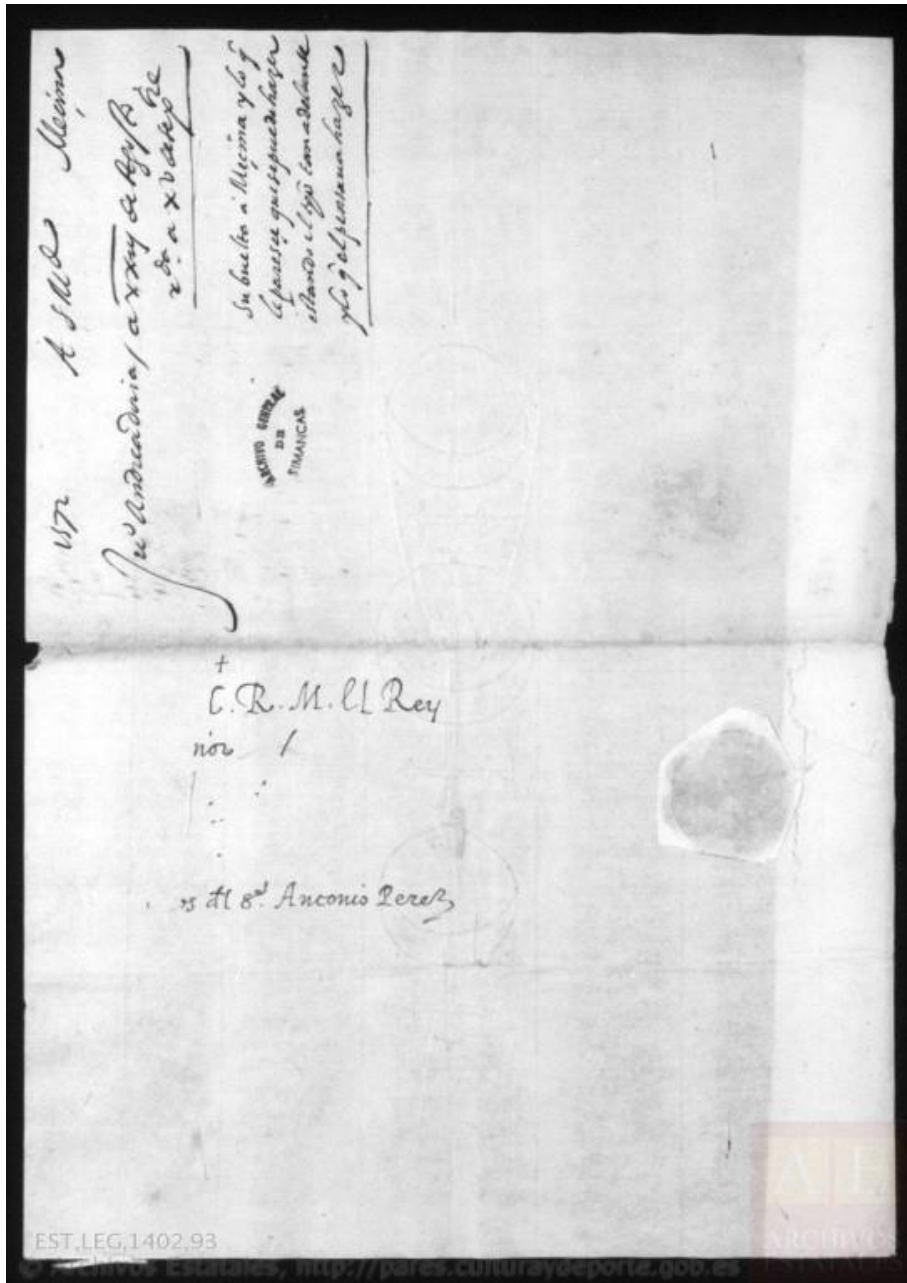 1572 A S M^d Mecina
Ju^o Andrea doria, a xxiiij de Agosto
r^da a xv de sep^re
Su buelta a Meçina y lo q
le paresce que se puede hazer
estando el año tan adelante
y lo q el pensaua hazer
ARCHIVO GENERAL
DE
SIMANCAS
+
C. R. M. El Rey
n̄ro /
Antonio Perez
EST,LEG,1402,93
© Archivos Estatales, http://pares.culturaydeporte.gob.es
AE
ARCHIVOS
ESTATALES